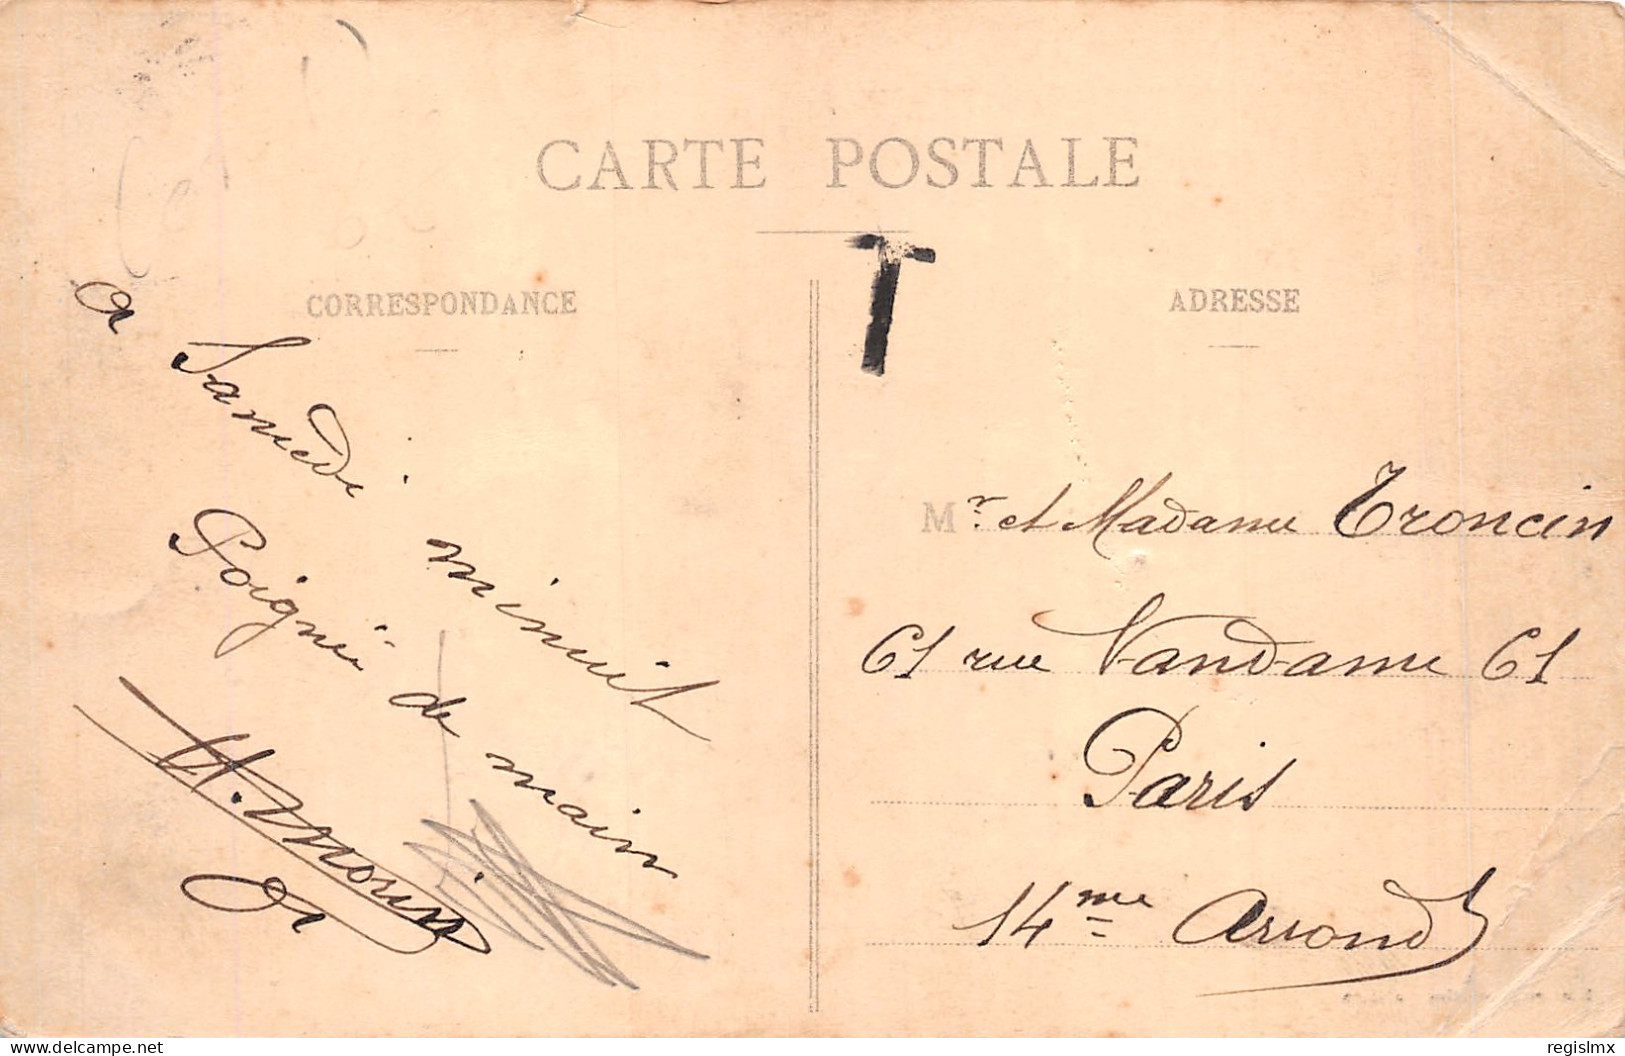 CARTE POSTALE
T
CORRESPONDANCE
a Samedi minuit
Poignée de main
H. Morin
ADRESSE
Mr. et Madame Troncin
61 rue Vandame 61
Paris
14me Arrond
www.delcampe.net
regislmx